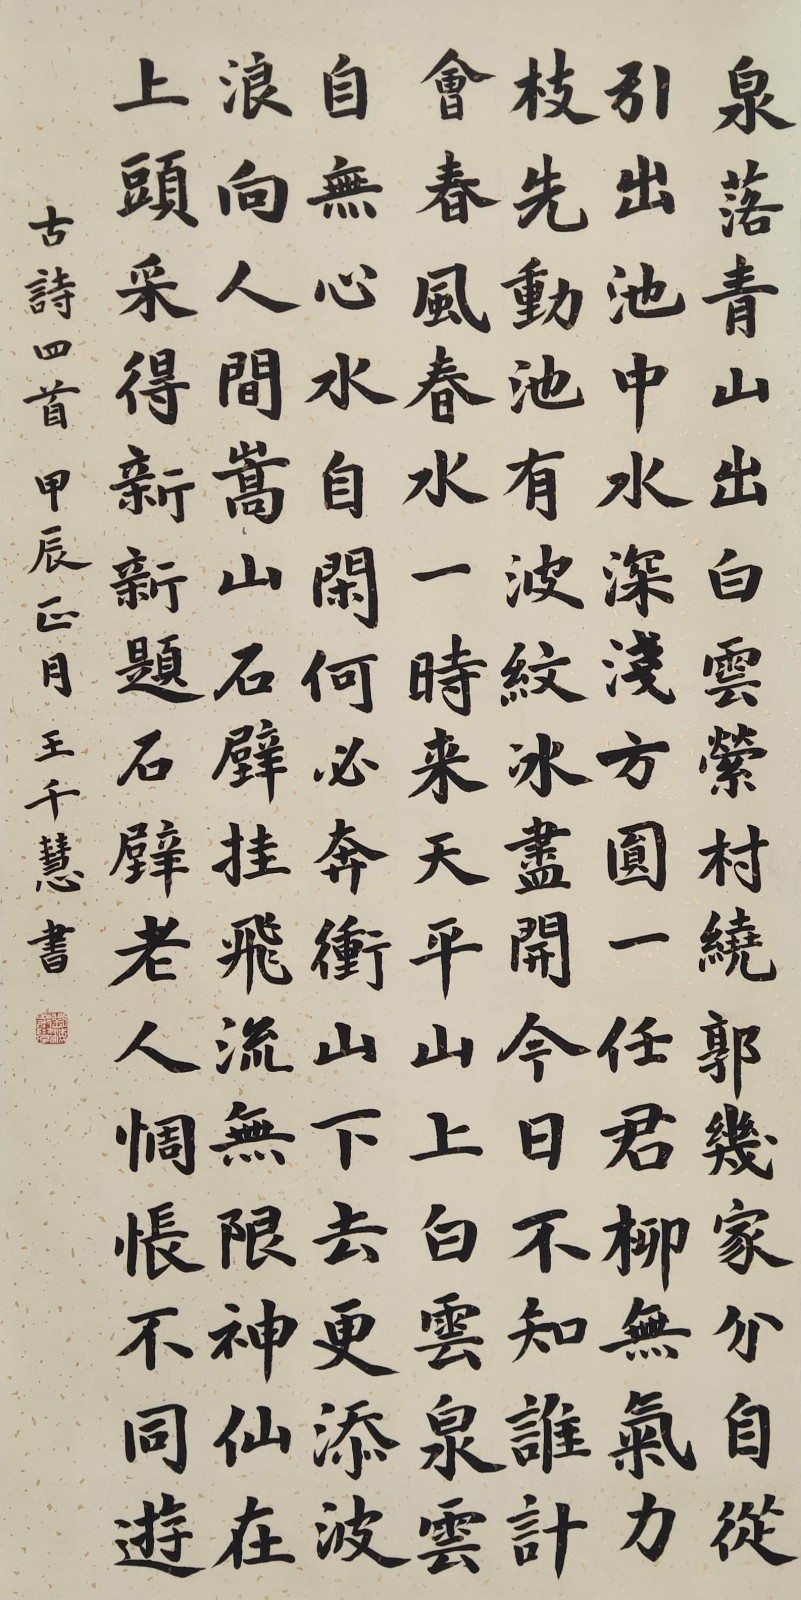 泉落青山出白雲縈村繞郭幾家分自從
引出池中水深淺方圓一任君柳無氣力
枝先動池有波紋冰盡開今日不知誰計
會春風春水一時来天平山上白雲泉雲
自無心水自閑何必奔衝山下去更添波
浪向人間嵩山石壁挂飛流無限神仙在
上頭采得新新題石壁老人惆悵不同遊
古詩四首 甲辰正月 王千慧書